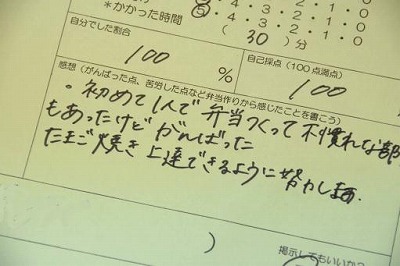 ⑤・4・3・2・1・0
*かかった時間 ( 30 ) 分
自分でした割合
100 %
自己採点(100点満点)
100
感想(がんばった点、苦労した点など弁当作りから感じたことを書こう)
。初めて1人で弁当つくって不慣れな部
もあったけどがんばった
たまご焼き上達できるように努力します.
)
掲示してもいいか?